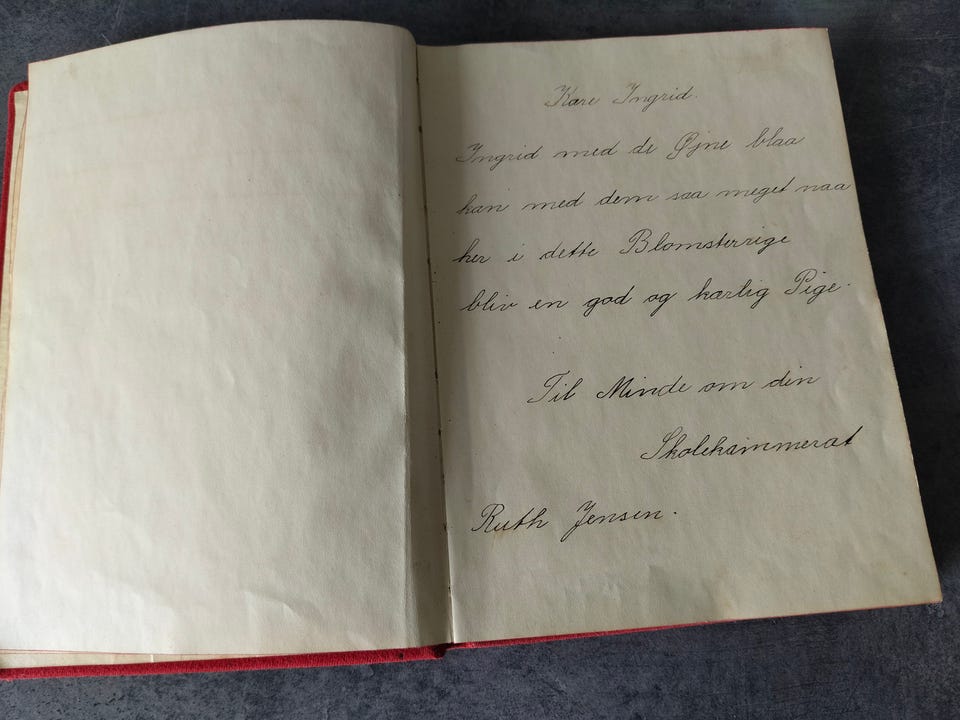 Kære Ingrid.
Ingrid med de Øjne blaa
kan med dem saa meget naa
her i dette Blomsterrige
bliv en god og kærlig Pige.
Til Minde om din
Skolekammerat
Ruth Jensen.